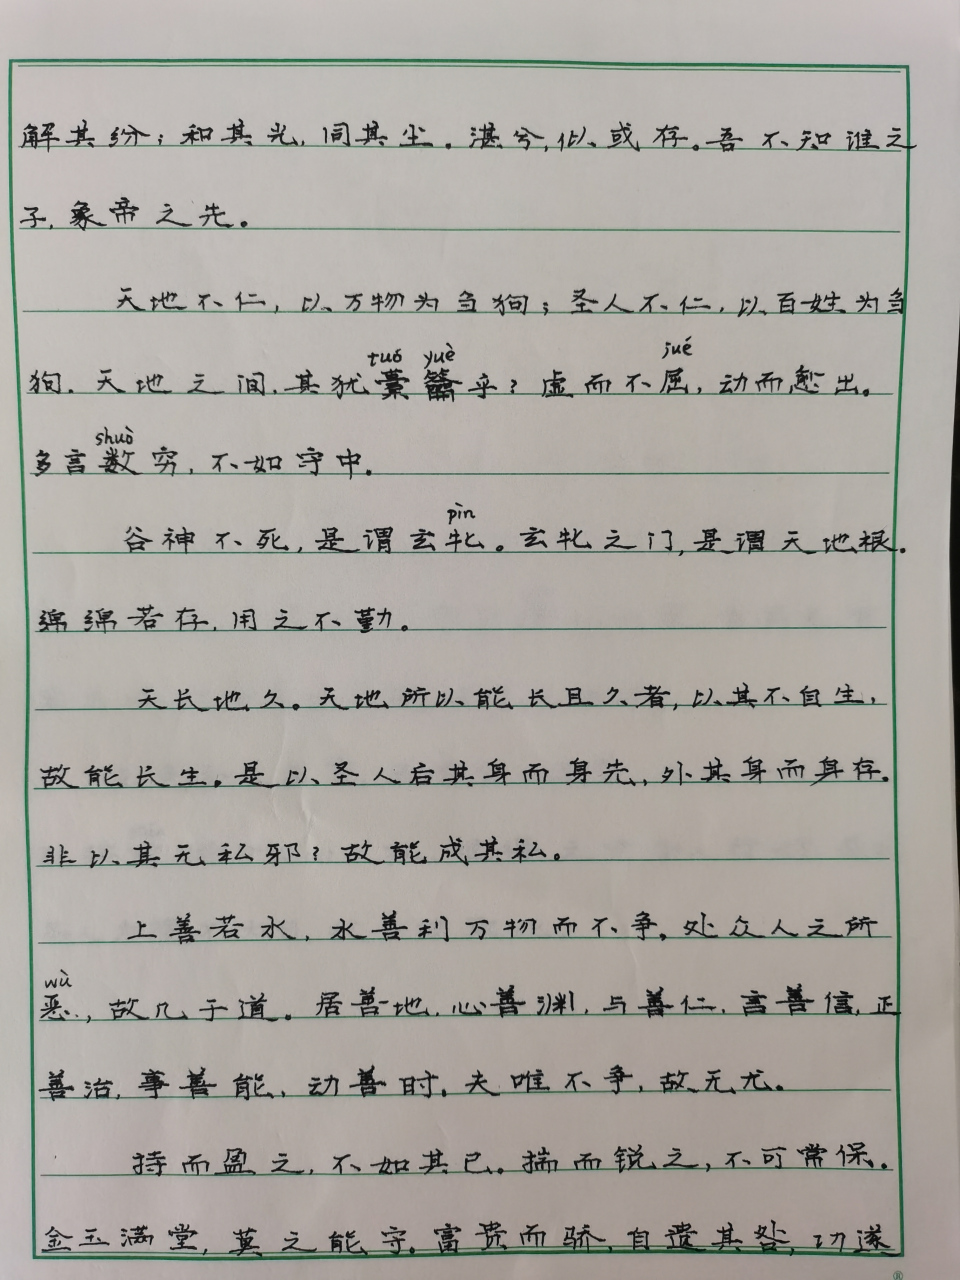 解其纷；和其光，同其尘。湛兮，似或存。吾不知谁之
子，象帝之先。
天地不仁，以万物为刍狗；圣人不仁，以百姓为刍
tuó yuè jué
狗。天地之间，其犹橐籥乎？虚而不屈，动而愈出。
shuò
多言数穷，不如守中。
pìn
谷神不死，是谓玄牝。玄牝之门，是谓天地根。
绵绵若存，用之不勤。
天长地久。天地所以能长且久者，以其不自生，
故能长生。是以圣人后其身而身先，外其身而身存。
非以其无私邪？故能成其私。
上善若水，水善利万物而不争。处众人之所
wù
恶，故几于道。居善地，心善渊，与善仁，言善信，正
善治，事善能，动善时。夫唯不争，故无尤。
持而盈之，不如其已。揣而锐之，不可常保。
金玉满堂，莫之能守。富贵而骄，自遗其咎，功遂